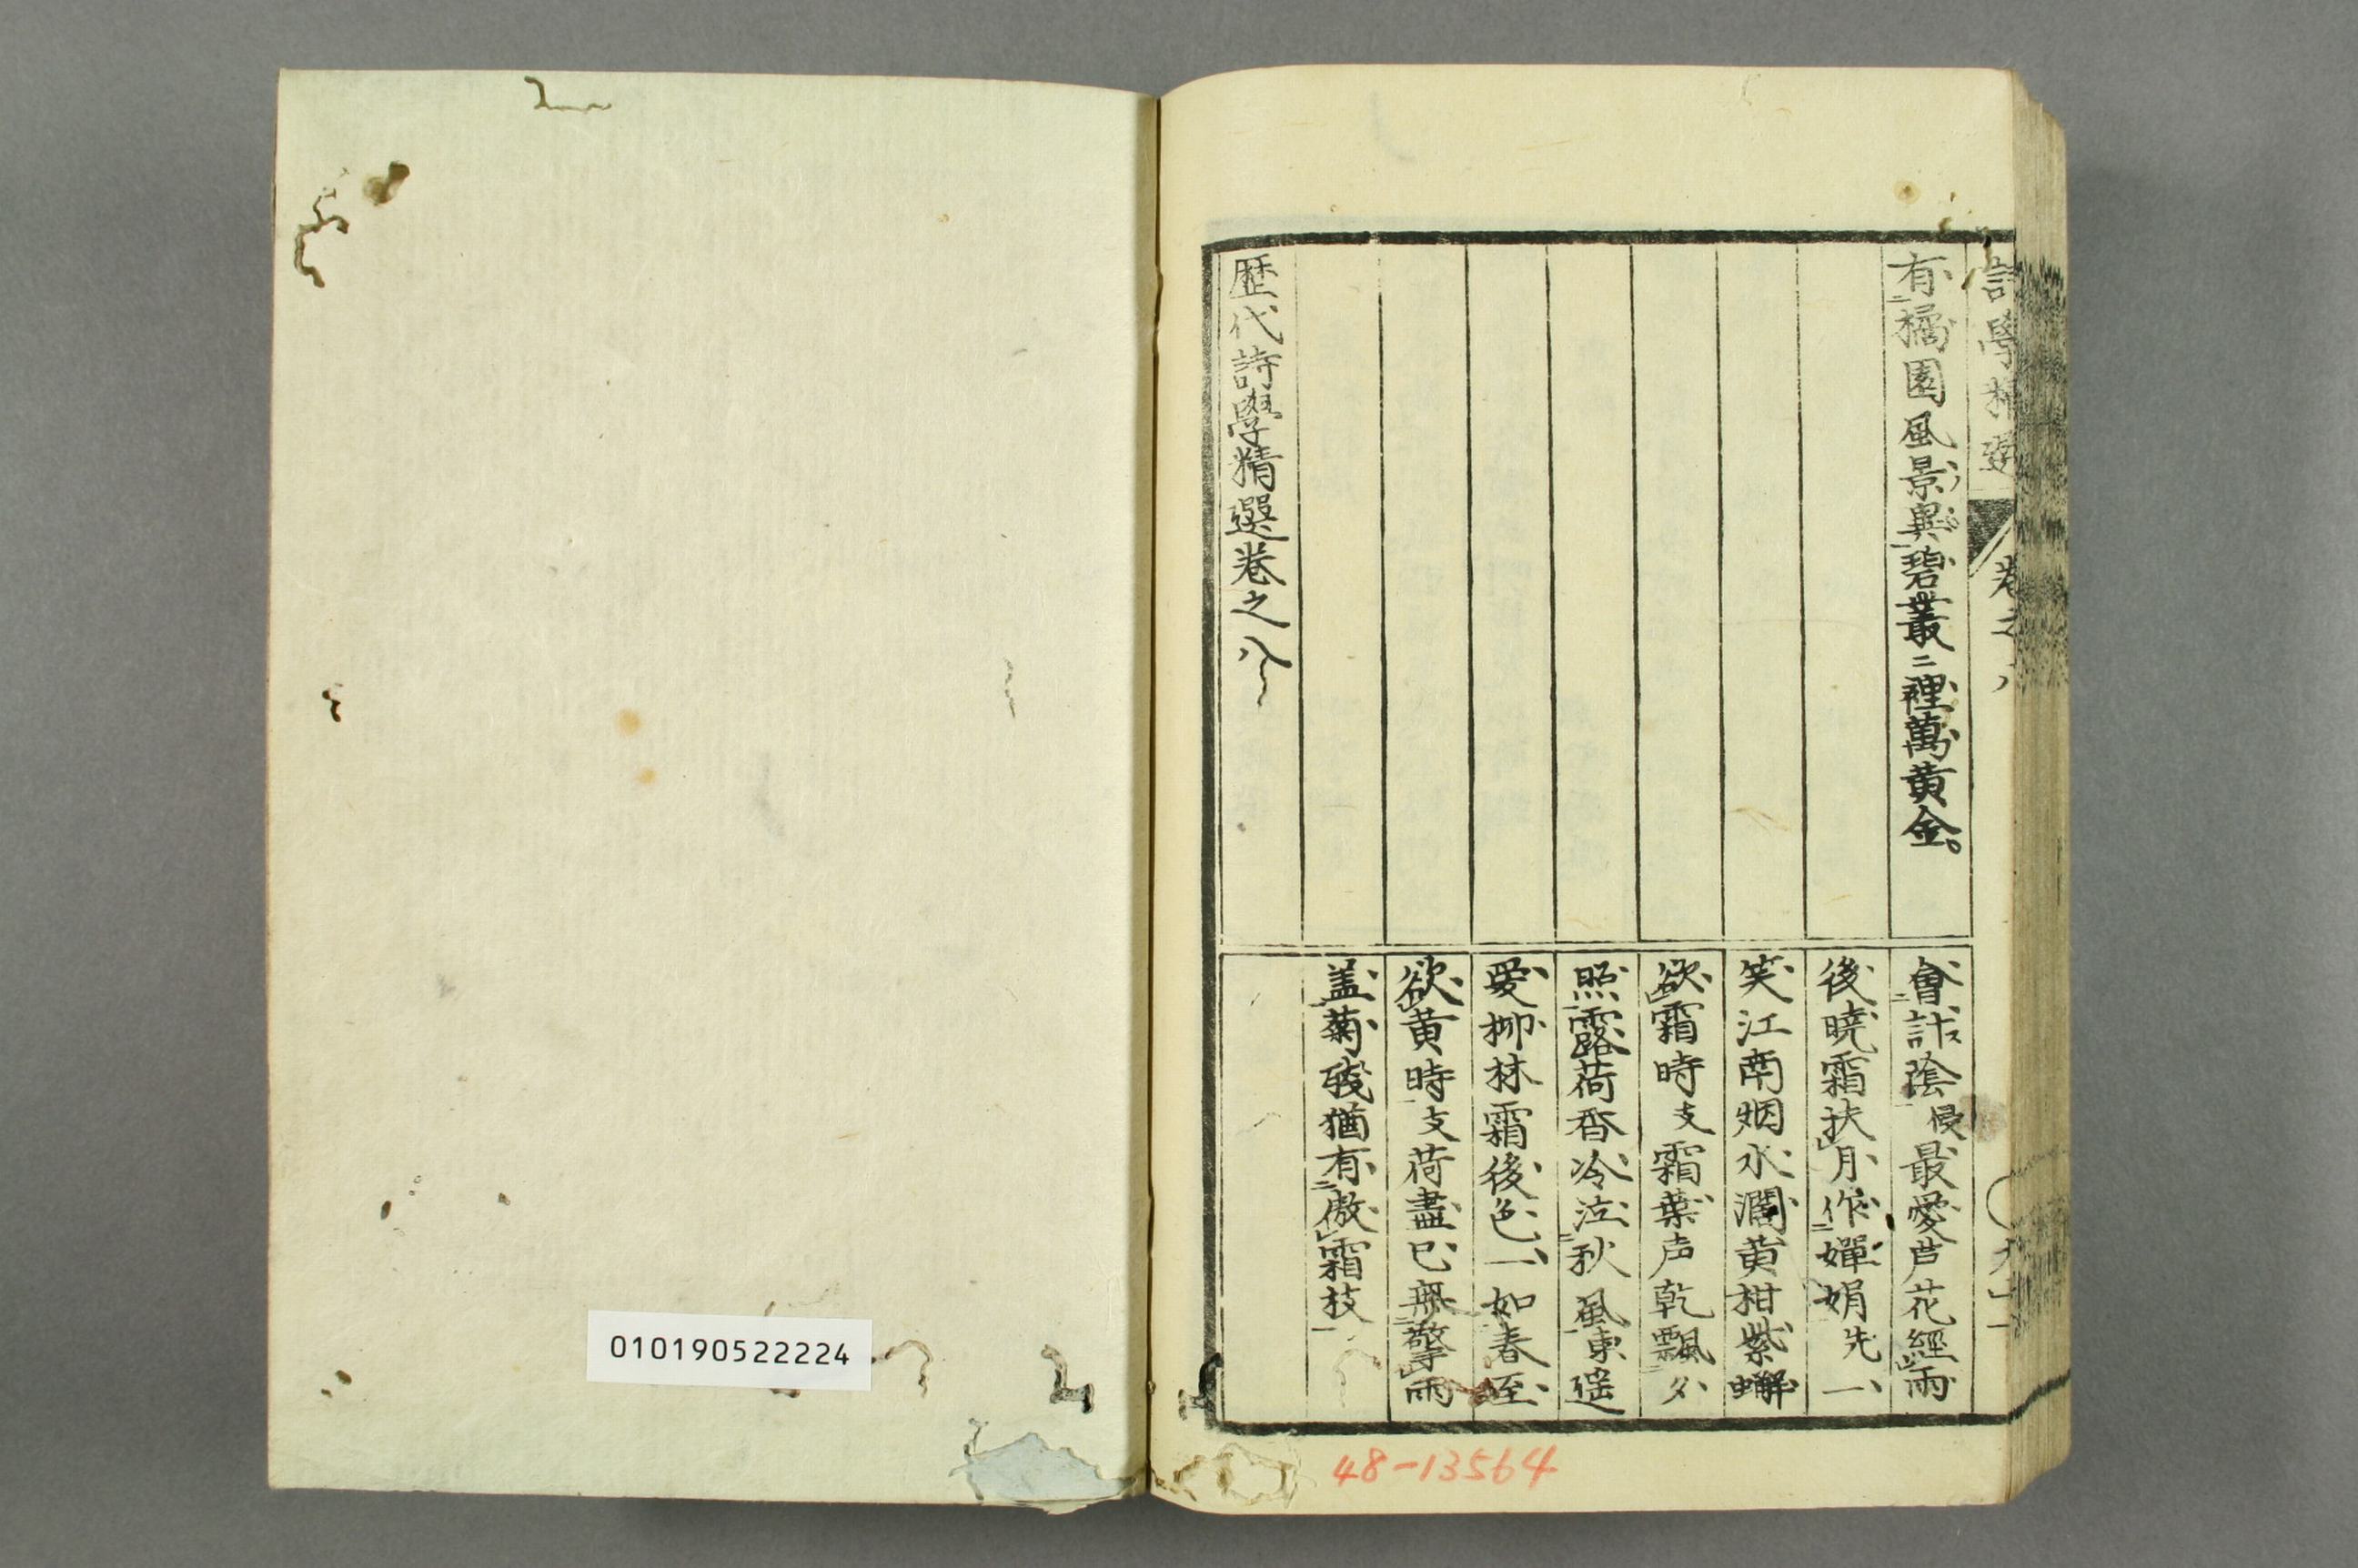 有橘園風景與碧叢裡萬黃金。
歴代詩學精選卷之八
會計陰侵最愛芦花經雨
後曉霜扶月作嬋娟先一
笑江南烟水濶黄柑紫蠏
欲霜時支霜葉声乾飄夕
照露荷香冷泣秋風東遥
愛柳林霜後色一如春至
欲黄時支荷盡已無擎雨
盖菊殘猶有傲霜枝
詩學精選
卷之八
010190522224
48-13564